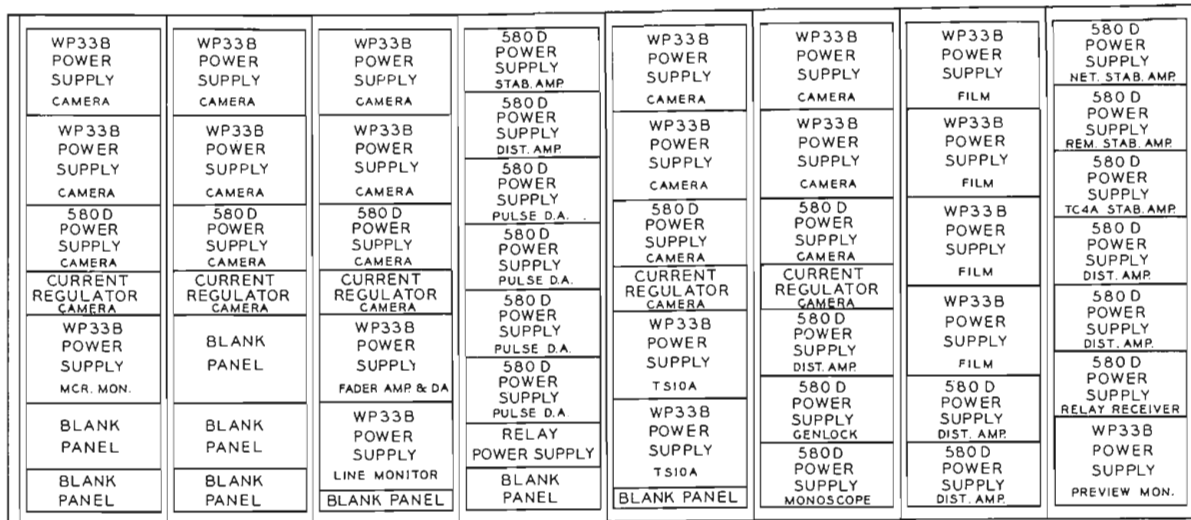 WP33B
POWER
SUPPLY
CAMERA
WP33B
POWER
SUPPLY
CAMERA
580D
POWER
SUPPLY
CAMERA
CURRENT
REGULATOR
CAMERA
WP33B
POWER
SUPPLY
MCR. MON.
BLANK
PANEL
BLANK
PANEL
WP33B
POWER
SUPPLY
CAMERA
WP33B
POWER
SUPPLY
CAMERA
580D
POWER
SUPPLY
CAMERA
CURRENT
REGULATOR
CAMERA
BLANK
PANEL
BLANK
PANEL
BLANK
PANEL
WP33B
POWER
SUPPLY
CAMERA
WP33B
POWER
SUPPLY
CAMERA
580 D
POWER
SUPPLY
CAMERA
CURRENT
REGULATOR
CAMERA
WP33B
POWER
SUPPLY
FADER AMP. & DA
WP33B
POWER
SUPPLY
LINE MONITOR
BLANK PANEL
580 D
POWER
SUPPLY
STAB. AMP.
580 D
POWER
SUPPLY
DIST. AMP.
580 D
POWER
SUPPLY
PULSE D.A.
580 D
POWER
SUPPLY
PULSE D.A.
580 D
POWER
SUPPLY
PULSE D.A.
580 D
POWER
SUPPLY
PULSE D.A
RELAY
POWER SUPPLY
BLANK
PANEL
WP33B
POWER
SUPPLY
CAMERA
WP33B
POWER
SUPPLY
CAMERA
580 D
POWER
SUPPLY
CAMERA
CURRENT
REGULATOR
CAMERA
WP33B
POWER
SUPPLY
TS10A
WP33B
POWER
SUPPLY
TS10A
BLANK PANEL
WP33B
POWER
SUPPLY
CAMERA
WP33B
POWER
SUPPLY
CAMERA
580 D
POWER
SUPPLY
CAMERA
CURRENT
REGULATOR
CAMERA
580 D
POWER
SUPPLY
DIST. AMP.
580 D
POWER
SUPPLY
GENLOCK
580D
POWER
SUPPLY
MONOSCOPE
WP33B
POWER
SUPPLY
FILM
WP33B
POWER
SUPPLY
FILM
WP33B
POWER
SUPPLY
FILM
WP33B
POWER
SUPPLY
FILM
580 D
POWER
SUPPLY
DIST. AMP.
580D
POWER
SUPPLY
DIST. AMP.
580 D
POWER
SUPPLY
NET. STAB. AMP.
580 D
POWER
SUPPLY
REM. STAB. AMP.
580 D
POWER
SUPPLY
TC4A STAB. AMP.
580 D
POWER
SUPPLY
DIST. AMP.
580 D
POWER
SUPPLY
DIST. AMP.
580 D
POWER
SUPPLY
RELAY RECEIVER
WP33B
POWER
SUPPLY
PREVIEW MON.